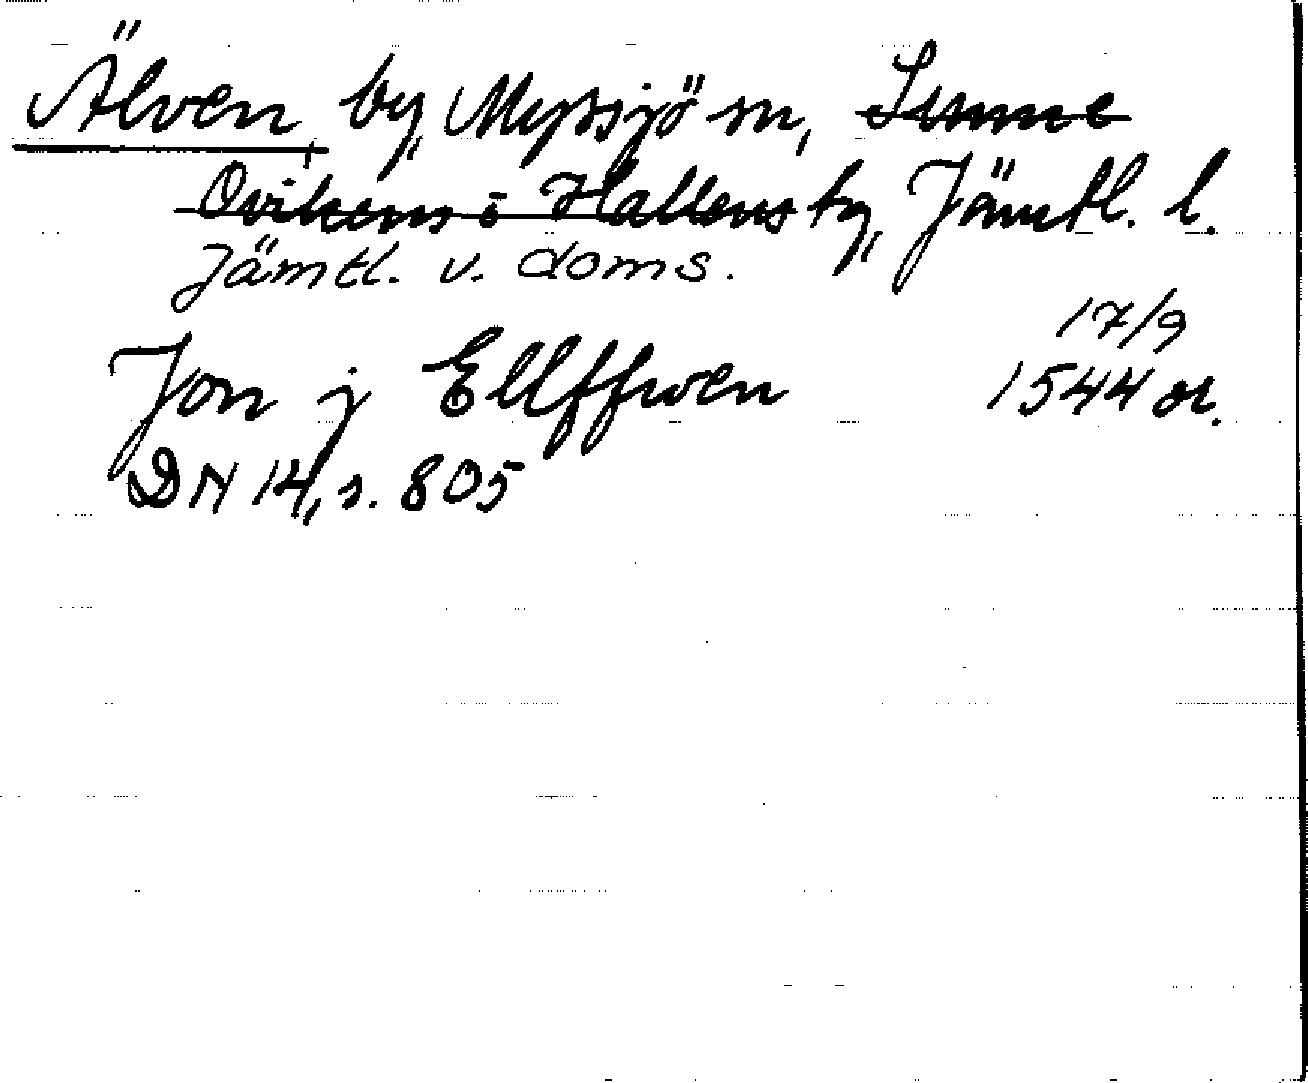 Älven by, Myssjö sn, Sunne
Ovikens o Hallens tg, Jämtl. l.
Jämtl. v. doms.
17/9
Jon j Ellffwen 1544 or.
DN 14, s. 805